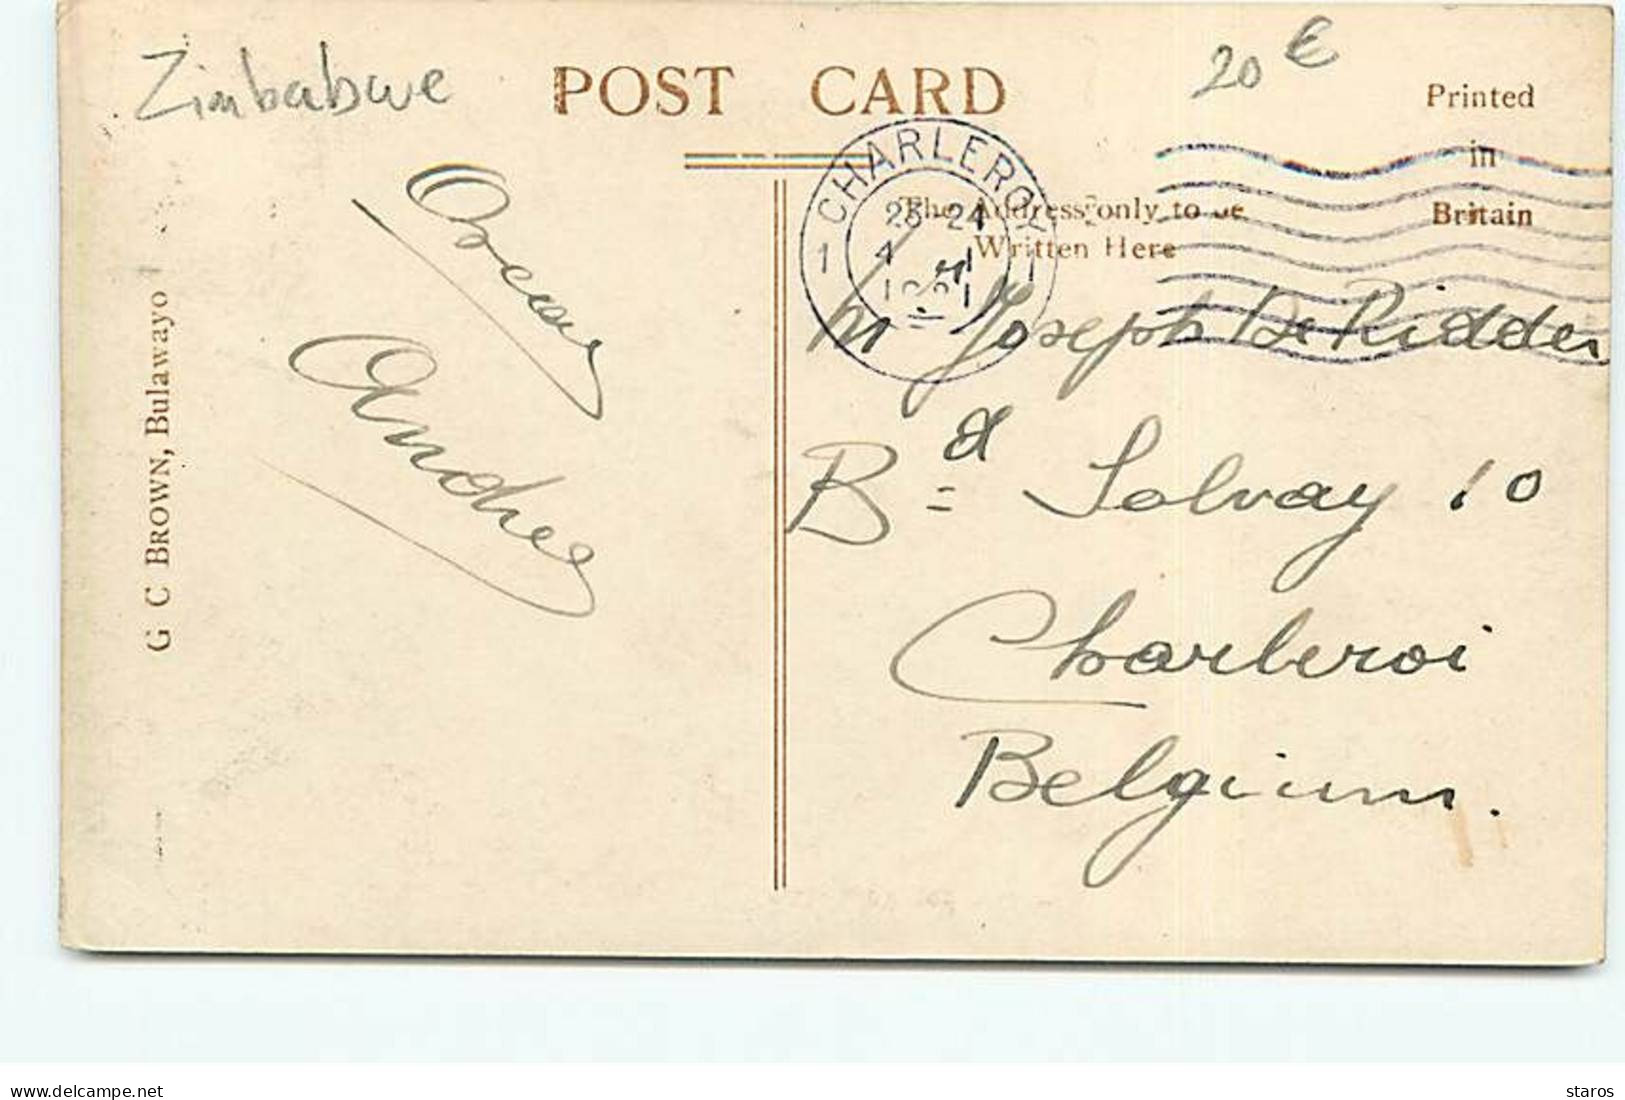 Zimbabwe
POST CARD
20 €
Printed
in
Britain
The Address only to be
Written Here
CHARLEROY
1 1
23-24
G C BROWN, Bulawayo
Oscar
Andrée
Mr Joseph De Ridder
Bd = Solvay 10
Charleroi
Belgium.
delcampe.net
staros